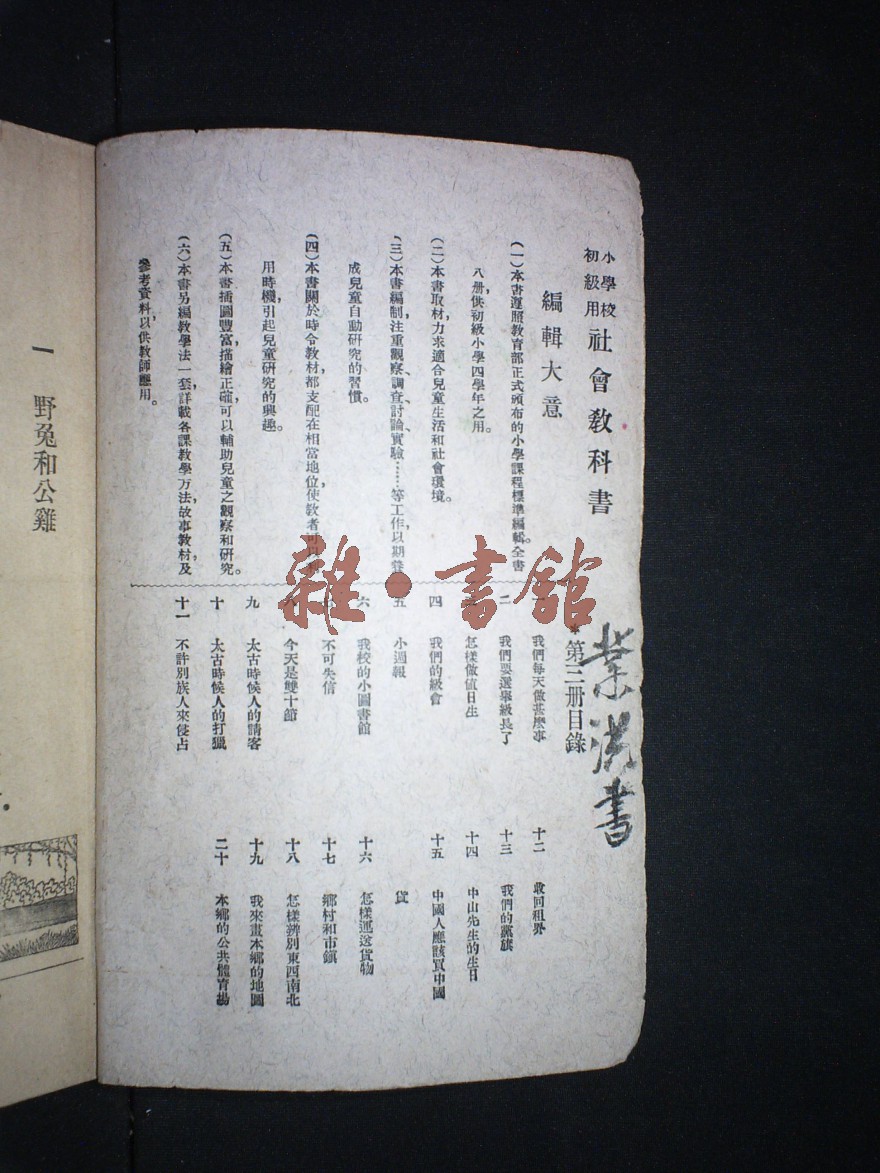 小學校
初級用
社會教科書
編輯大意
(一)本書遵照教育部正式頒布的小學課程標準編輯。全書
八册,供初級小學四學年之用。
(二)本書取材力求適合兒童生活和社會環境。
(三)本書編制注重觀察、調查、討論、實驗……等工作,以期養
成兒童自動研究的習慣。
(四)本書關於時令教材,都支配在相當地位,使教者可以利
用時機,引起兒童研究的興趣。
(五)本書插圖豐富,描繪正確,可以輔助兒童之觀察和研究。
(六)本書另編教學法一套,詳載各課教學方法、故事教材及
參考資料,以供教師應用。
*第三册目錄
一 我們每天做甚麼事
二 我們要選舉級長了
三 怎樣做值日生
四 我們的級會
五 小週報
六 我校的小圖書館
七 不可失信
八 今天是雙十節
九 太古時候人的請客
十 太古時候人的打獵
十一 不許別族人來侵占
十二 收回租界
十三 我們的黨旗
十四 中山先生的生日
十五 中國人應該買中國
貨
十六 怎樣運送貨物
十七 鄉村和市鎮
十八 怎樣辨別東西南北
十九 我來畫本鄉的地圖
二十 本鄉的公共體育場
書
雜·書館
一 野兔和公雞